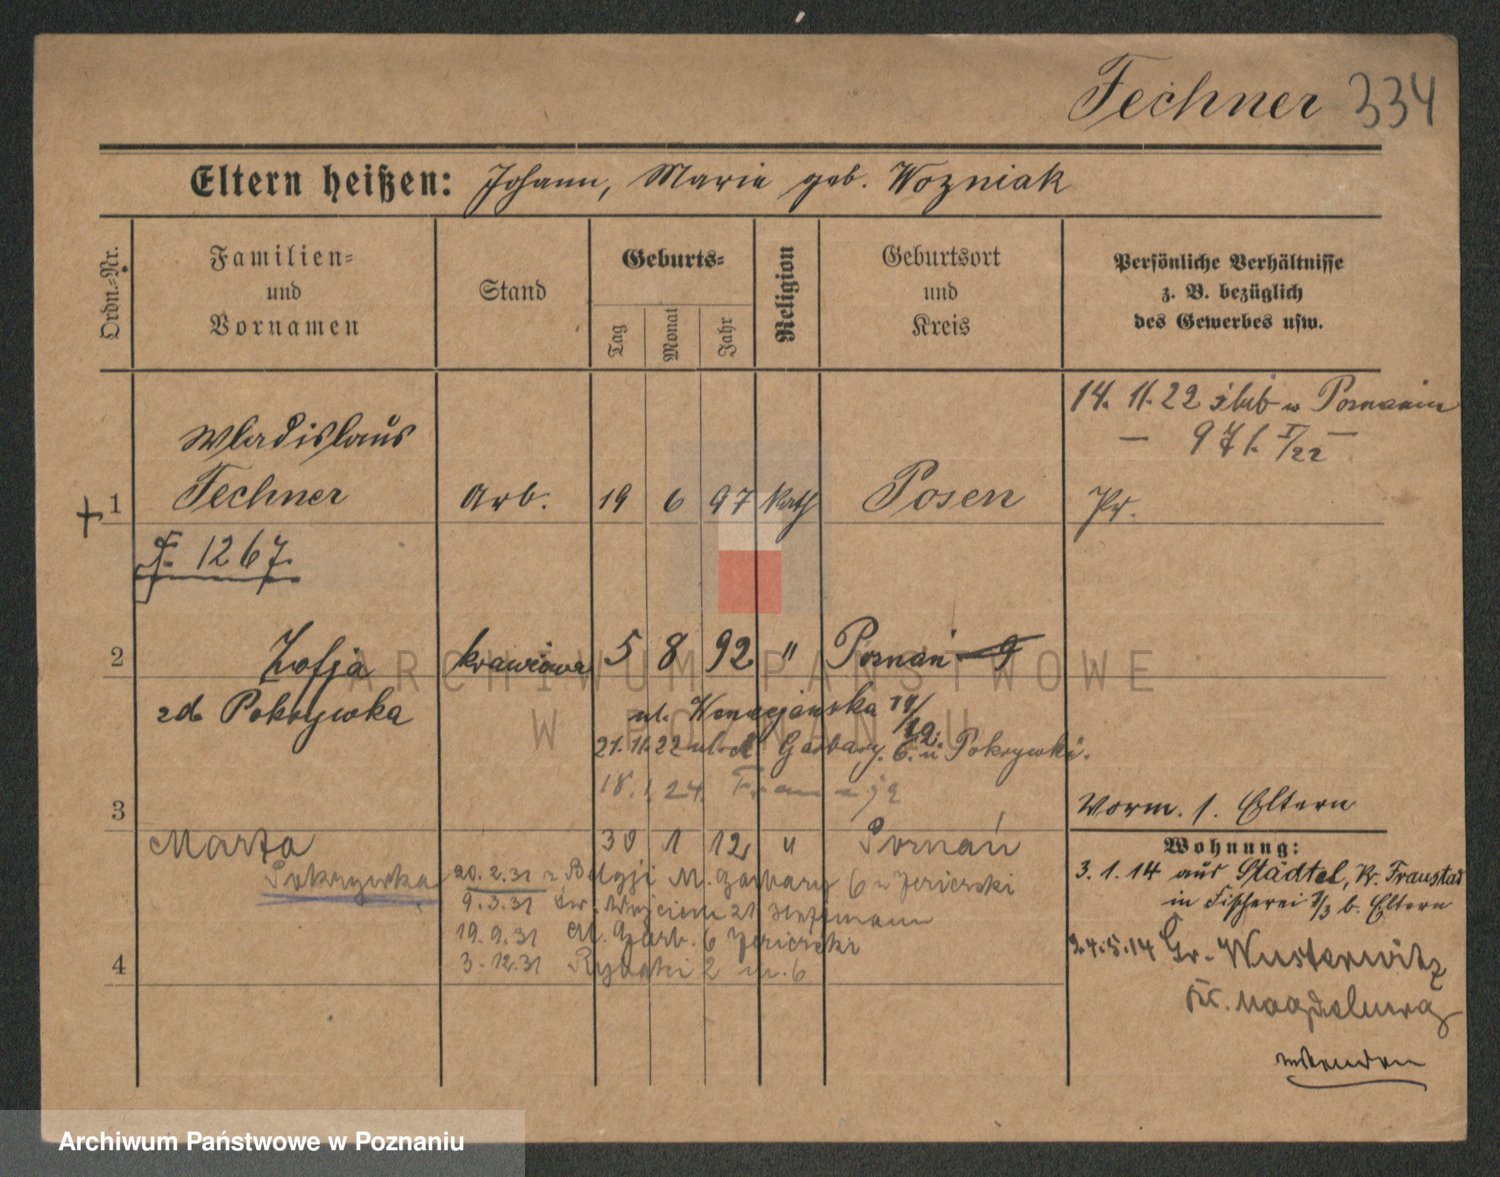 Fechner 334
Eltern heißen: Johann, Marie geb. Wozniak
Ordn.-Nr.
Familien-
und
Vornamen
Stand
Geburts-
Tag
Monat
Jahr
Religion
Geburtsort
und
Kreis
Persönliche Verhältnisse
z. B. bezüglich
des Gewerbes usw.
14. 11. 22 ślub w Poznaniu
— 971. I/22 —
Wladislaus
+ 1 Fechner Arb. 19 6 97 Kath Posen Pr.
F. 1267
2 Zofja krawcowa 5 8 92 " Poznań
zd. Pokrywka ul. Wenecjańska
21. 11. 22 Garbary 6. u Pokrywki.
18. 1. 24. Francja
3
Worm. s. Eltern
Marta 30 1 12 " Poznań
Pokrywka 20. 2. 31 z Belgji M. Garbary 6 u Jezierski
9. 3. 31 św. Wojciech
19. 9. 31 M. Garb. 6 Jezierski
4 3. 12. 31 Rybaki 2 m. 6
Wohnung:
3. 1. 14 aus Städtel, Kr. Fraustadt
in Fischerei 2/3 b. Eltern
24. 5. 14 Gr. Wusterwitz
Kr. Magdeburg
wenden
ARCHIWUM PAŃSTWOWE
W POZNANIU
Archiwum Państwowe w Poznaniu